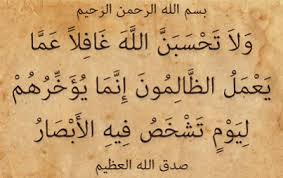 بسم الله الرحمن الرحيم
وَلاَ تَحْسَبَنَّ اللَّهَ غَافِلاً عَمَّا
يَعْمَلُ الظَّالِمُونَ إِنَّمَا يُؤَخِّرُهُمْ
لِيَوْمٍ تَشْخَصُ فِيهِ الأَبْصَارُ
صدق الله العظيم